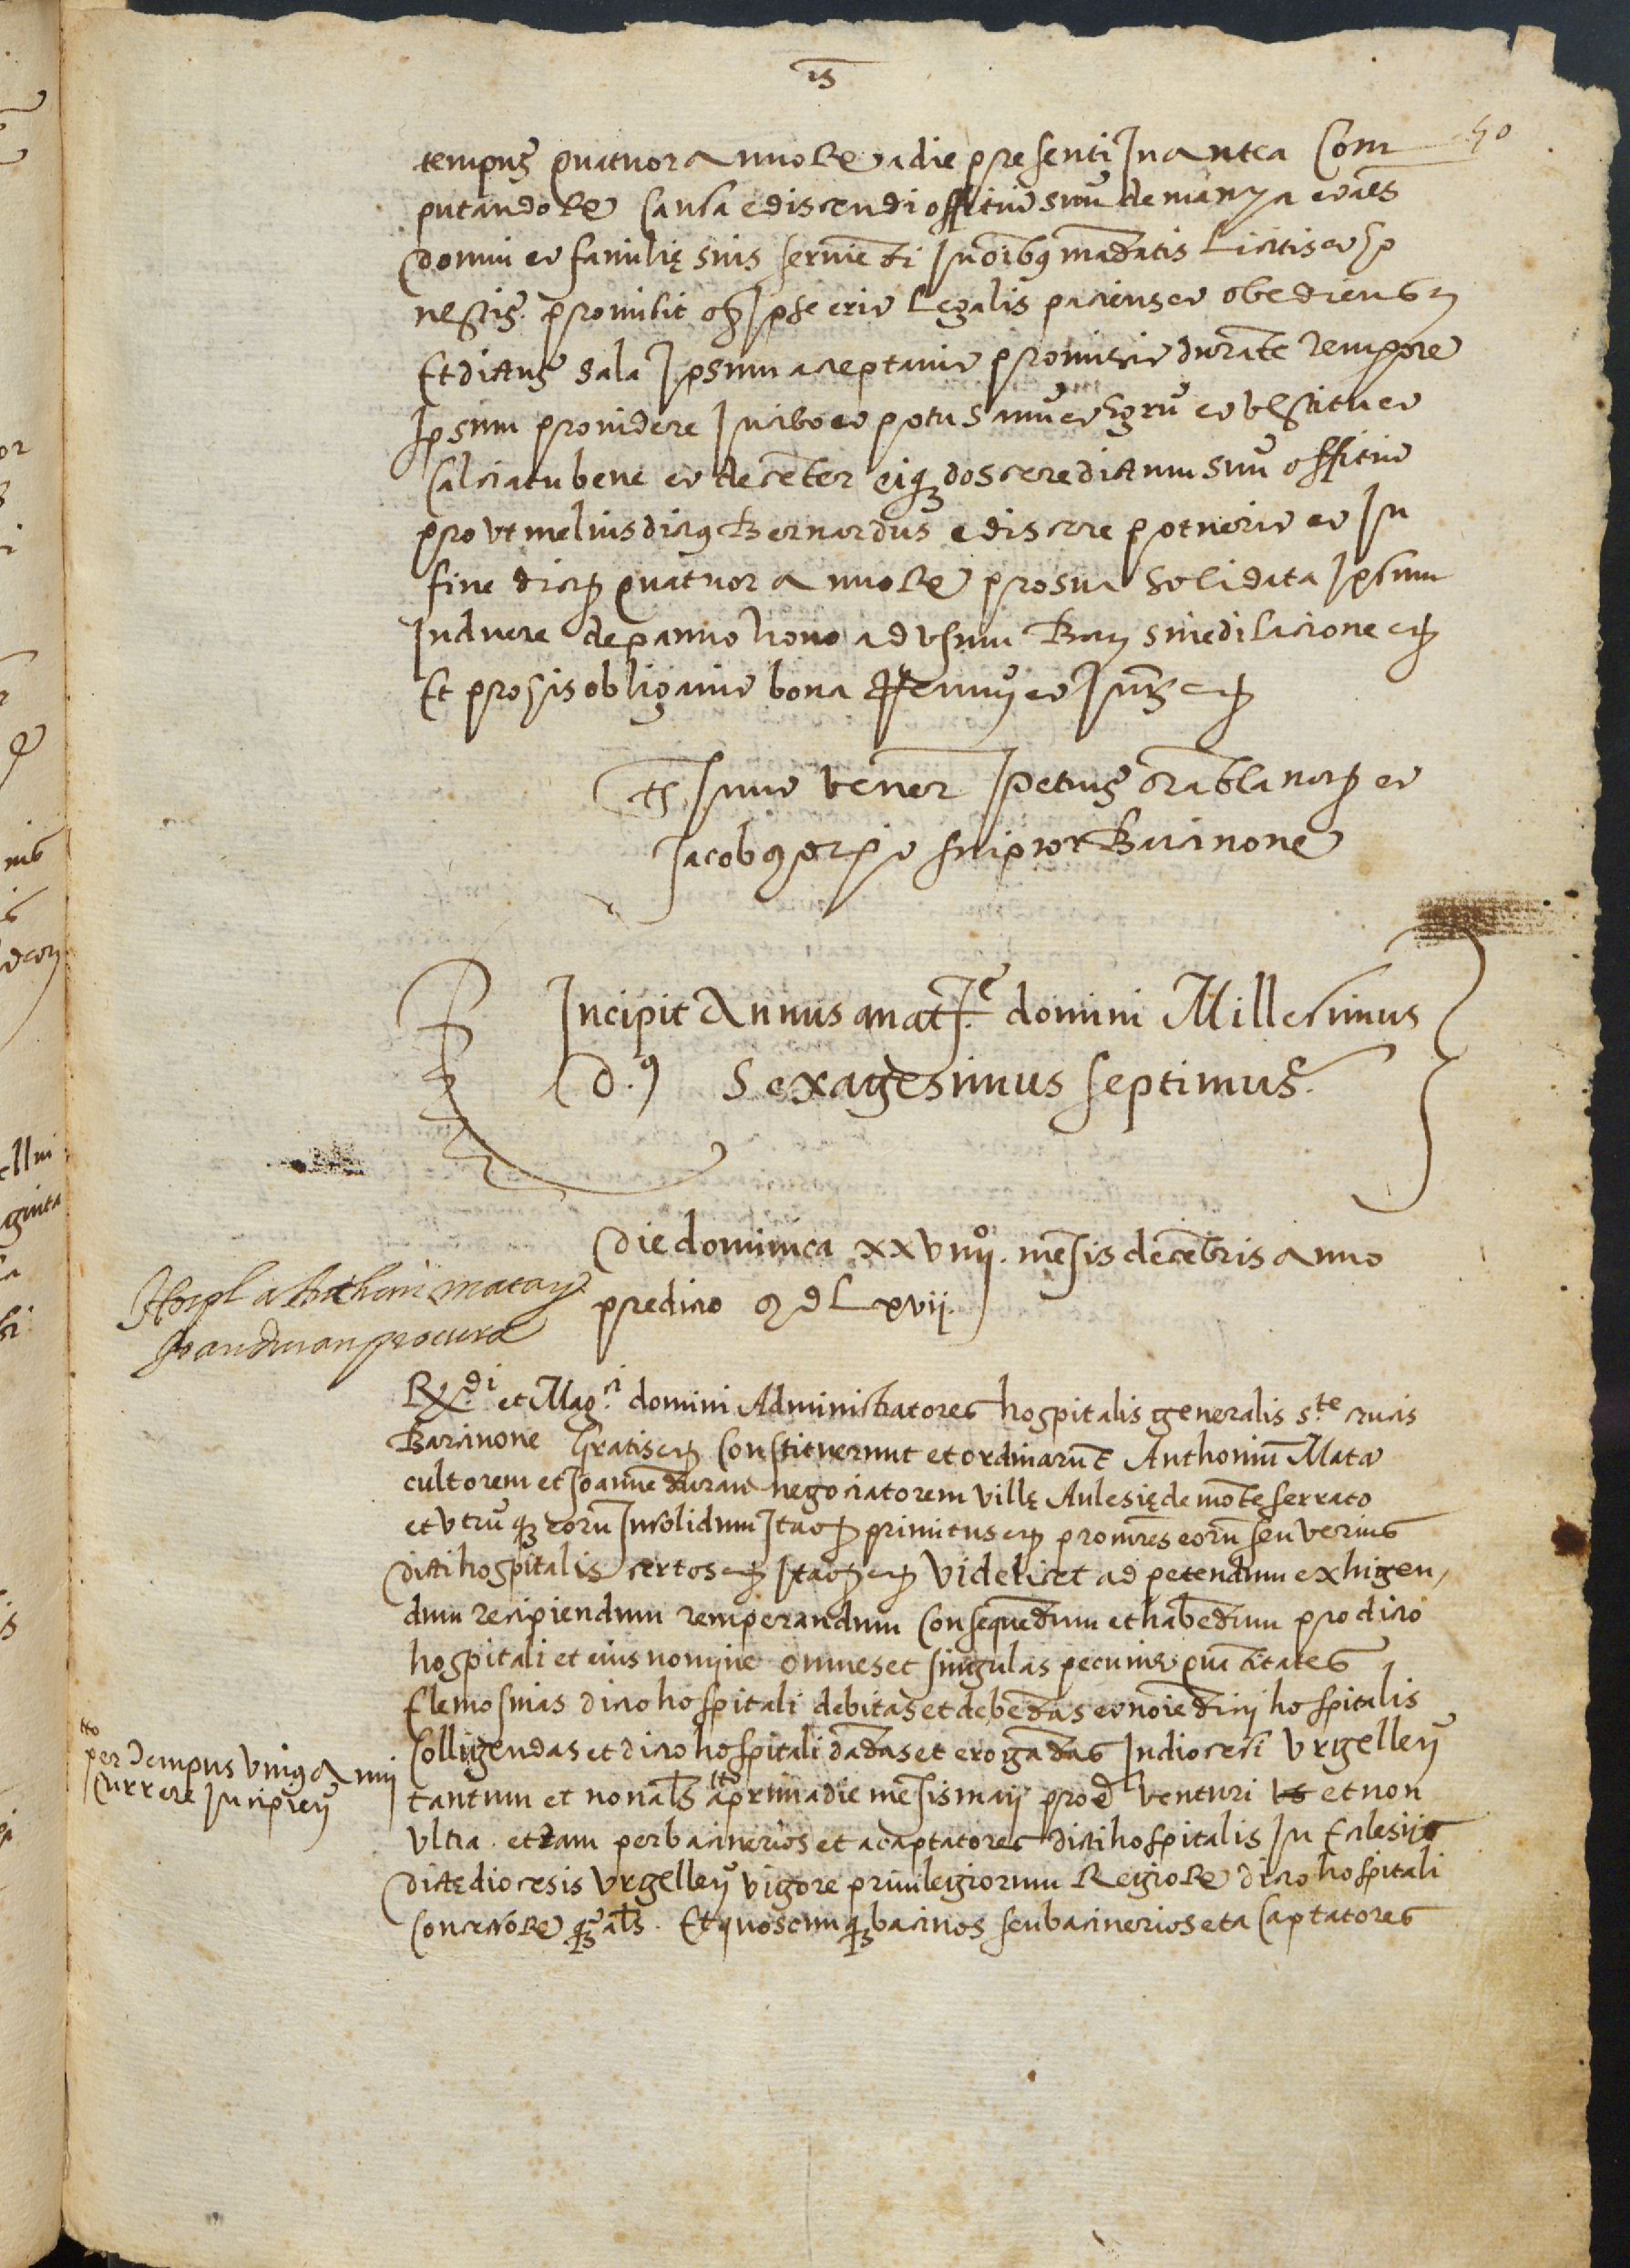 50
tempus quatuor annoRe a die presenti In antea Com
putandoRe Causa ediscendi offitiu suu de manya et als
domui et familię suis servieti In oibus madatis Licitis et ho
nestis. promisit q Ipse erit Legalis paciens et obediens
Et dictus Sala Ipsum aceptavit promisit durate tempore
Ipsum providere In cibo et potu Sanu et egru et vestitu et
Calciatu bene et deceter eiq docere dictum suu offitiu
prout melius dictus Bernardus ediscere potuerit et In
fine dict quatuor annoRe pro sua Solidata Ipsum
Induere de panno novo ad usum Bar sine dilacione etc
Et pro his obligavit bona et Iur etc
ts sunt vener petrus orabla et
Jacobus scriptor Barcinone
Incipit Annus a nat.e domini Millesimus
D.s Sexagesimus septimus.
Die dominica xxviiijo. mesis decebris anno
predicto M D Lxvii.
Hospl a Anthoni mata y
Joan duran procura
Rdi. et Magci. domini Administratores hospitalis generalis s.te crucis
Barcinone Gratis etc Constituerunt et ordinarut Anthoniu Mata
cultorem et Joanne duran negociatorem villę Aulesię de mote serrato
et utruq eoru Insolidum Ita q primitus etc procures eoru seu verius
dicti hospitalis certos etc Ita q etc Videlicet ad petendum exhigen,
dum recipiendum recuperandum Consequedum et habedum pro dicto
hospitali et eius nomine omnes et singulas pecunie quatitates
Elemosinas dicto hospitali debitas et debedas et noie dicti hospitalis
Colligendas et dicto hospitali dadas et erogadas In diocesi Urgellen
tantum et non als tto a prima die mesis maii prod venturi et non
per tempus unius anni
Currere Incipien
ultra. et tam per bacinerios et acaptatores dicti hospitalis In Eclesiis
dictę diocesis Urgellen vigore privilegiorum RegioRe dicto hospitali
concessoRe q als. Et quoscumq bacinos seu bacinerios et aCaptatores